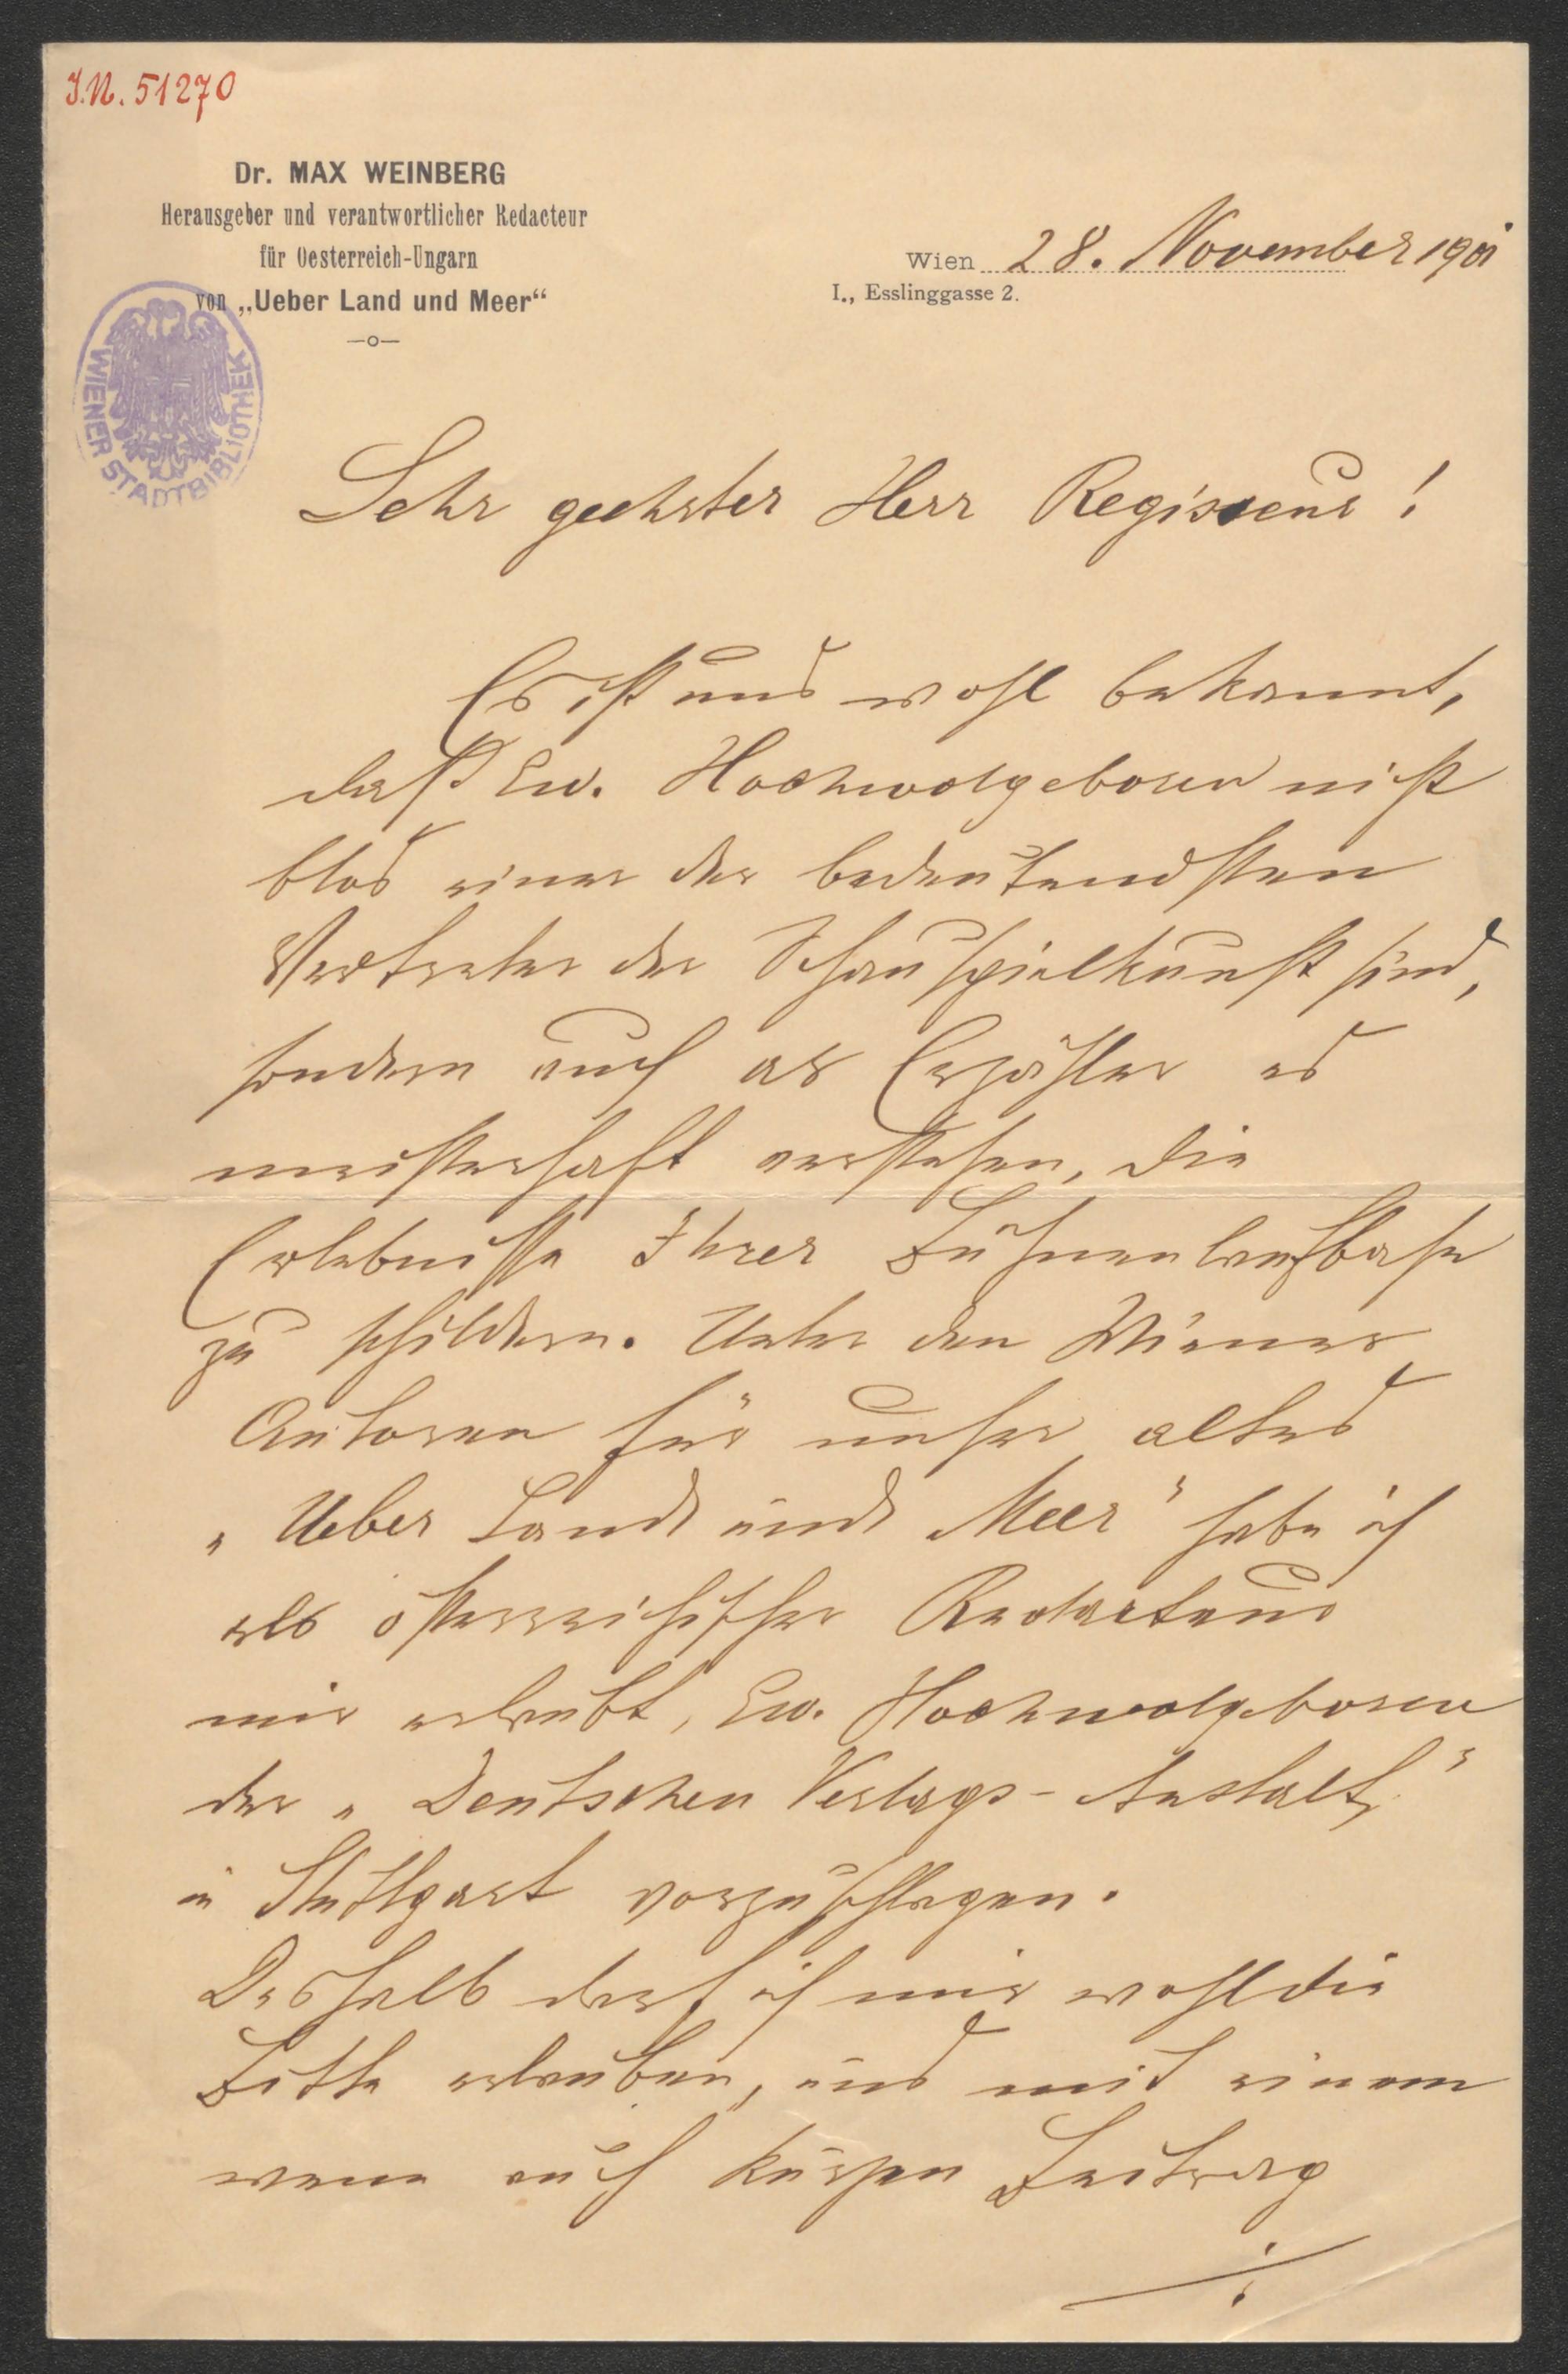 J.N. 51270
Dr. MAX WEINBERG
Herausgeber und verantwortlicher Redacteur
für Oesterreich-Ungarn
von „Ueber Land und Meer“
Wien 28. November 1901
I., Esslinggasse 2.
WIENER STADTBIBLIOTHEK
Sehr geehrter Herr Regisseur!
Es ist uns wohl bekannt,
daß Ew. Hochwolgeboren nicht
blos einer der bedeutendsten
Vertreter der Schauspielkunst sind,
sondern auch als Erzähler es
meisterhaft verstehen, die
Erlebnisse Ihrer Bühnenlaufbahn
zu schildern. Unter den Wiener
Autoren für unser altes
„Ueber Land und Meer“ habe ich
als österreichischer Redacteur
mir erlaubt, Ew. Hochwolgeboren
der „Deutschen Verlags-Anstalt“
in Stuttgart vorzuschlagen.
Deshalb darf ich mir wohl die
Bitte erlauben, uns mit einem
wenn auch kurzen Beitrag
./.